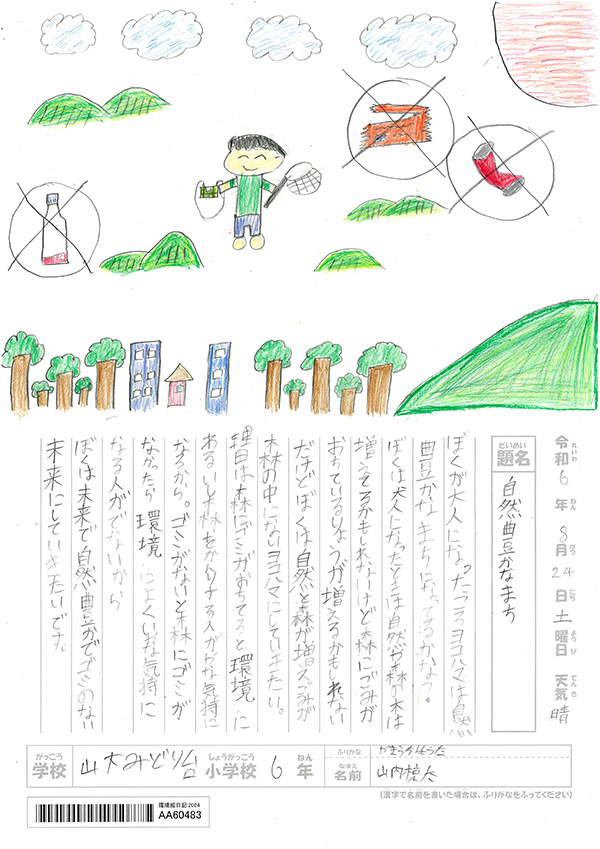 令和6年8月24日土曜日 天気 晴
れいわ ねん がつ にち よう び てんき
だいめい
題名 自然豊かなまち
ぼくが大人になったころヨコハマは自然
豊かなまちになってるかな?。
ぼくは大人になったときは自然や森の木は
増えてるかもしれないけど森にごみが
おちているりょうが増えるかもしれない
だけどぼくは自然と森が増えごみが
森の中にないヨコハマにしていきたい。
理由は森にゴミがおちてると環境に
あるいし森をかんりする人がいやな気持に
なるから。ゴミがないと森にゴミが
なかったら環境によくいやな気持に
なる人がでないから
ぼくは未来で自然豊かでゴミのない
未来にしていきたいです。
がっこう しょうがっこう ねん
学校 みどり台 小学校 6 年
ふりがな
なまえ
名前 山内
(漢字で名前を書いた場合は、ふりがなをふってください)
環境絵日記2024
AA60483